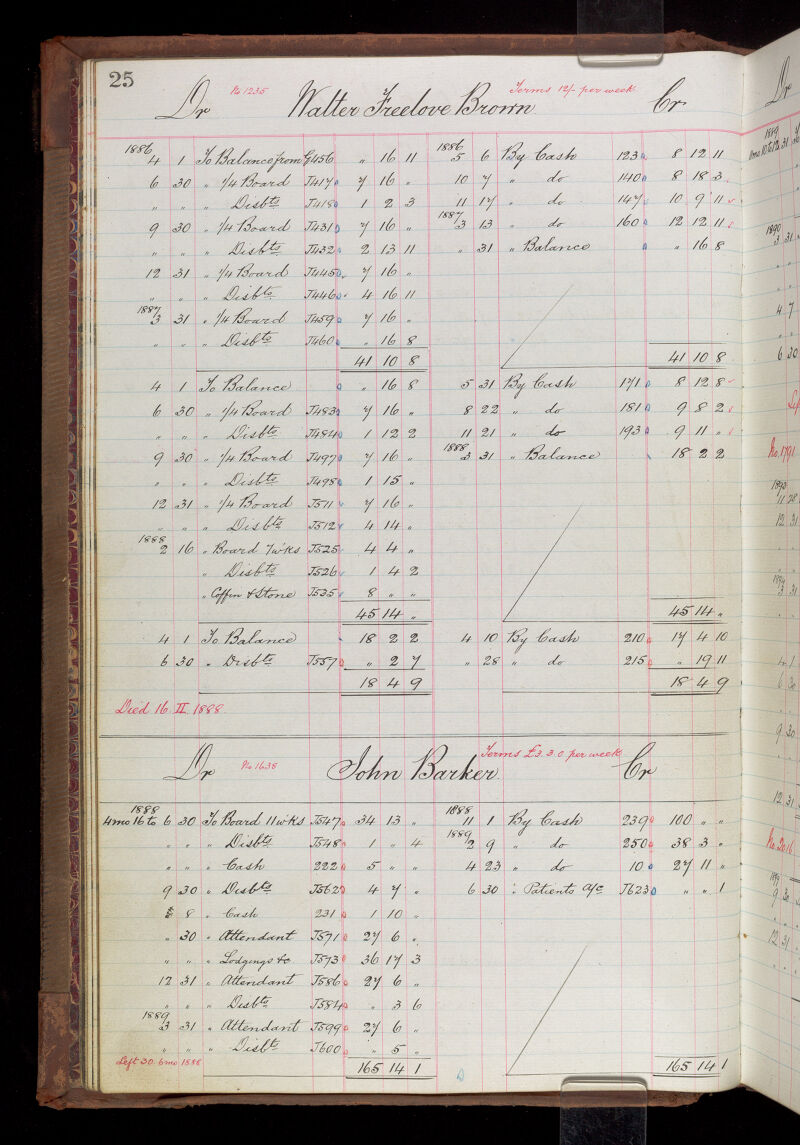 25
Dr No 1235 Walter Freelove Brown Terms 12/- per week Cr
1886 1886
4 1 To Balance from G456 " 16 11 5 6 By Cash 123 8 12 11
6 30 " 1/4 Board J417 7 16 " 10 7 " do 140 8 18 3
" " " Disbts J418 1 2 3 11 17 " do 147 10 9 11
1887
9 30 " 1/4 Board J431 7 16 " 3 13 " do 160 12 12 11
" " " Disbts J432 2 13 11 " 31 " Balance " 16 8
12 31 " 1/4 Board J445 7 16 "
" " " Disbts J446 4 16 11
1887
3 31 " 1/4 Board J459 7 16 "
" " " Disbts J460 " 16 8
41 10 8 41 10 8
4 1 To Balance " 16 8 5 31 By Cash 171 8 12 8
6 30 " 1/4 Board J483 7 16 " 8 22 " do 181 9 8 2
" " " Disbts J484 1 12 2 11 21 " do 193 9 11 "
1888
9 30 " 1/4 Board J497 7 16 " 3 31 " Balance 18 2 2
" " " Disbts J498 1 15 "
12 31 " 1/4 Board J511 7 16 "
" " " Disbts J512 4 14 "
1888
2 16 " Board 7 wks J525 4 4 "
" Disbts J526 1 4 2
" Coffin & Stone J535 8 " "
45 14 " 45 14 "
4 1 To Balance 18 2 2 4 10 By Cash 210 17 4 10
6 30 " Disbts J557 " 2 7 " 28 " do 215 " 19 11
18 4 9 18 4 9
Died 16 II 1888
Dr No 1638 John Barker Terms £3.3.0 per week Cr
1888 1888
4mo 16 to 6 30 To Board 11 wks J547 34 13 " 11 1 By Cash 239 100 " "
1889
" " " Disbts J548 1 " 4 2 9 " do 250 38 3 "
" " " Cash 222 5 " " 4 23 " do 10 27 11 "
9 30 " Disbts J562 4 7 " 6 30 " Patients a/c J623 " " 1
8 " Cash 231 1 10 "
" 30 " Attendant J571 27 6 "
" " " Lodgings &c J573 36 17 3
12 31 " Attendant J586 27 6 "
" " " Disbts J584 " 3 6
1889
3 31 " Attendant J599 27 6 "
" " " Disbts J600 " 5 "
Left 30. 6mo 1888 165 14 1 165 14 1
Dr
1889
1890
3 31
4 7
6 30
No. 1791
12 31
3 31
4 1
6 30
9 30
12 31
No. 2016
9 30
12 31